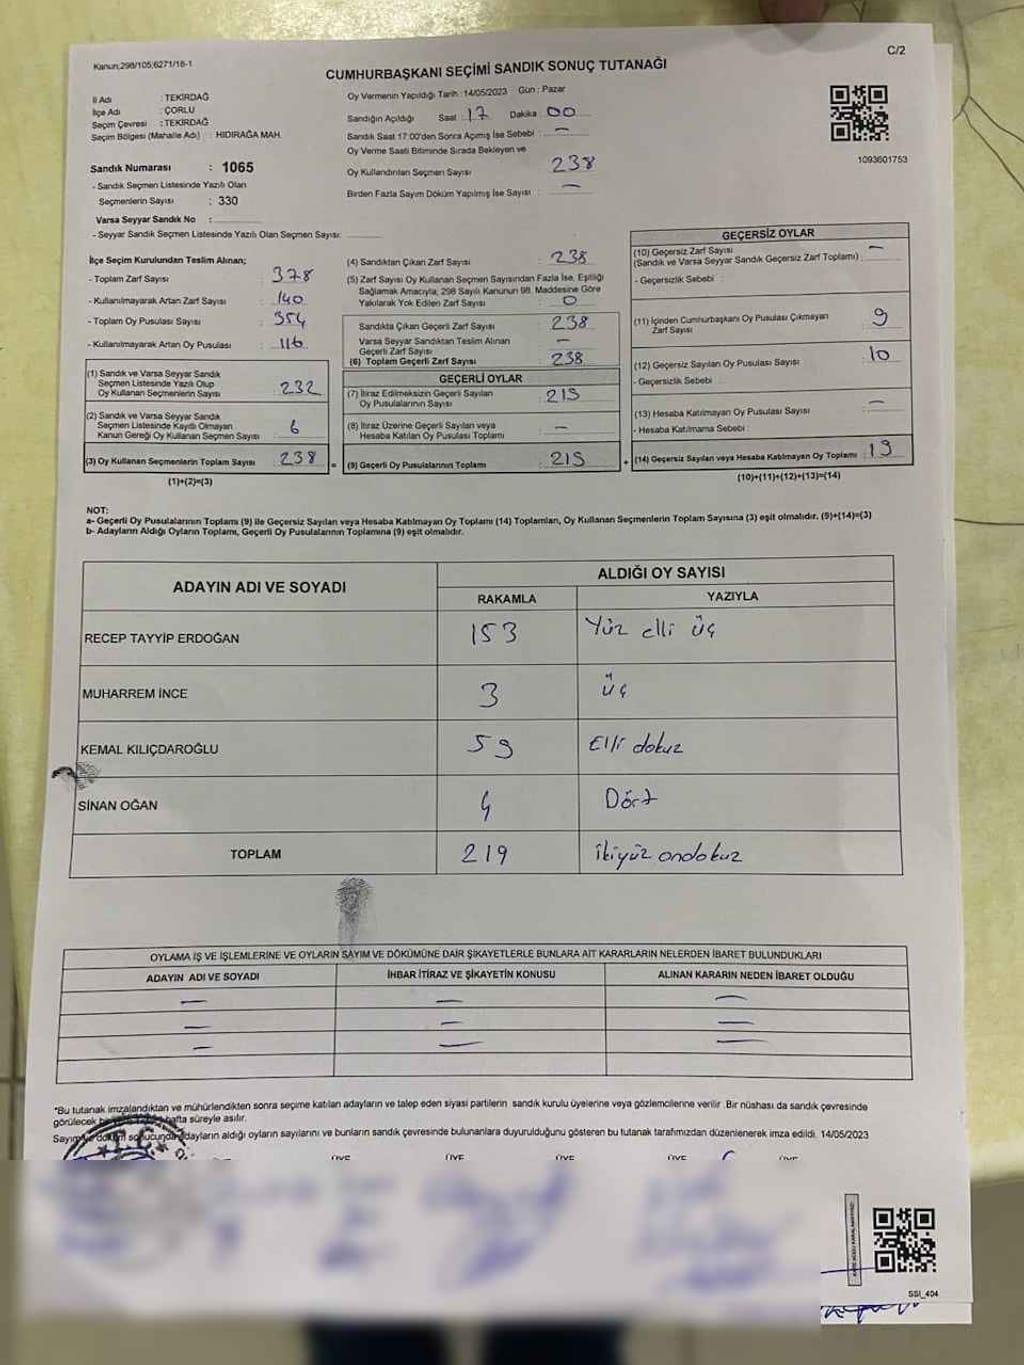 C/2
Kanun;298/105;6271/18-1
CUMHURBAŞKANI SEÇİMİ SANDIK SONUÇ TUTANAĞI
İl Adı : TEKİRDAĞ
İlçe Adı : ÇORLU
Seçim Çevresi : TEKİRDAĞ
Seçim Bölgesi (Mahalle Adı) : HIDIRAĞA MAH.
Sandık Numarası : 1065
- Sandık Seçmen Listesinde Yazılı Olan
Seçmenlerin Sayısı : 330
Varsa Seyyar Sandık No :
- Seyyar Sandık Seçmen Listesinde Yazılı Olan Seçmen Sayısı:
Oy Vermenin Yapıldığı Tarih : 14/05/2023 Gün : Pazar
Sandığın Açıldığı Saat 17 Dakika 00
Sandık Saat 17:00'den Sonra Açımış İse Sebebi : —
Oy Verme Saati Bitiminde Sırada Bekleyen ve
Oy Kullandırılan Seçmen Sayısı 238
Birden Fazla Sayım Döküm Yapılmış İse Sayısı : —
1093601753
İlçe Seçim Kurulundan Teslim Alınan;
- Toplam Zarf Sayısı : 378
- Kullanılmayarak Artan Zarf Sayısı : 140
- Toplam Oy Pusulası Sayısı : 354
- Kullanılmayarak Artan Oy Pusulası : 116
(1) Sandık ve Varsa Seyyar Sandık
Seçmen Listesinde Yazılı Olup
Oy Kullanan Seçmenlerin Sayısı : 232
(2) Sandık ve Varsa Seyyar Sandık
Seçmen Listesinde Kayıtlı Olmayan
Kanun Gereği Oy Kullanan Seçmen Sayısı : 6
(3) Oy Kullanan Seçmenlerin Toplam Sayısı : 238 =
(1)+(2)=(3)
(4) Sandıktan Çıkan Zarf Sayısı : 238
(5) Zarf Sayısı Oy Kullanan Seçmen Sayısından Fazla İse, Eşitliği
Sağlamak Amacıyla; 298 Sayılı Kanunun 98. Maddesine Göre
Yakılarak Yok Edilen Zarf Sayısı : 0
Sandıkta Çıkan Geçerli Zarf Sayısı : 238
Varsa Seyyar Sandıktan Teslim Alınan
Geçerli Zarf Sayısı : —
(6) Toplam Geçerli Zarf Sayısı : 238
GEÇERLİ OYLAR
(7) İtiraz Edilmeksizin Geçerli Sayılan
Oy Pusulalarının Sayısı : 219
(8) İtiraz Üzerine Geçerli Sayılan veya
Hesaba Katılan Oy Pusulası Toplamı : —
(9) Geçerli Oy Pusulalarının Toplamı : 219 +
GEÇERSİZ OYLAR
(10) Geçersiz Zarf Sayısı
(Sandık ve Varsa Seyyar Sandık Geçersiz Zarf Toplamı) : —
- Geçersizlik Sebebi :
(11) İçinden Cumhurbaşkanı Oy Pusulası Çıkmayan
Zarf Sayısı : 9
(12) Geçersiz Sayılan Oy Pusulası Sayısı : 10
- Geçersizlik Sebebi :
(13) Hesaba Katılmayan Oy Pusulası Sayısı : —
- Hesaba Katılmama Sebebi :
(14) Geçersiz Sayılan veya Hesaba Katılmayan Oy Toplamı : 19
(10)+(11)+(12)+(13)=(14)
NOT:
a- Geçerli Oy Pusulalarının Toplamı (9) ile Geçersiz Sayılan veya Hesaba Katılmayan Oy Toplamı (14) Toplamları, Oy Kullanan Seçmenlerin Toplam Sayısına (3) eşit olmalıdır. (9)+(14)=(3)
b- Adayların Aldığı Oyların Toplamı, Geçerli Oy Pusulalarının Toplamına (9) eşit olmalıdır.
ADAYIN ADI VE SOYADI
ALDIĞI OY SAYISI
RAKAMLA YAZIYLA
RECEP TAYYİP ERDOĞAN 153 Yüz elli üç
MUHARREM İNCE 3 üç
KEMAL KILIÇDAROĞLU 59 Elli dokuz
SİNAN OĞAN 4 Dört
TOPLAM 219 ikiyüz ondokuz
OYLAMA İŞ VE İŞLEMLERİNE VE OYLARIN SAYIM VE DÖKÜMÜNE DAİR ŞİKAYETLERLE BUNLARA AİT KARARLARIN NELERDEN İBARET BULUNDUKLARI
ADAYIN ADI VE SOYADI İHBAR İTİRAZ VE ŞİKAYETİN KONUSU ALINAN KARARIN NEDEN İBARET OLDUĞU
— — —
— — —
— — —
*Bu tutanak imzalandıktan ve mühürlendikten sonra seçime katılan adayların ve talep eden siyasi partilerin sandık kurulu üyelerine veya gözlemcilerine verilir. Bir nüshası da sandık çevresinde
görülecek hafta süreyle asılır.
Sayım ve döküm sonucunda adayların aldığı oyların sayılarını ve bunların sandık çevresinde bulunanlara duyurulduğunu gösteren bu tutanak tarafımızdan düzenlenerek imza edildi. 14/05/2023
T.C.
ÜYE ÜYE ÜYE ÜYE ÜYE
SSI_404